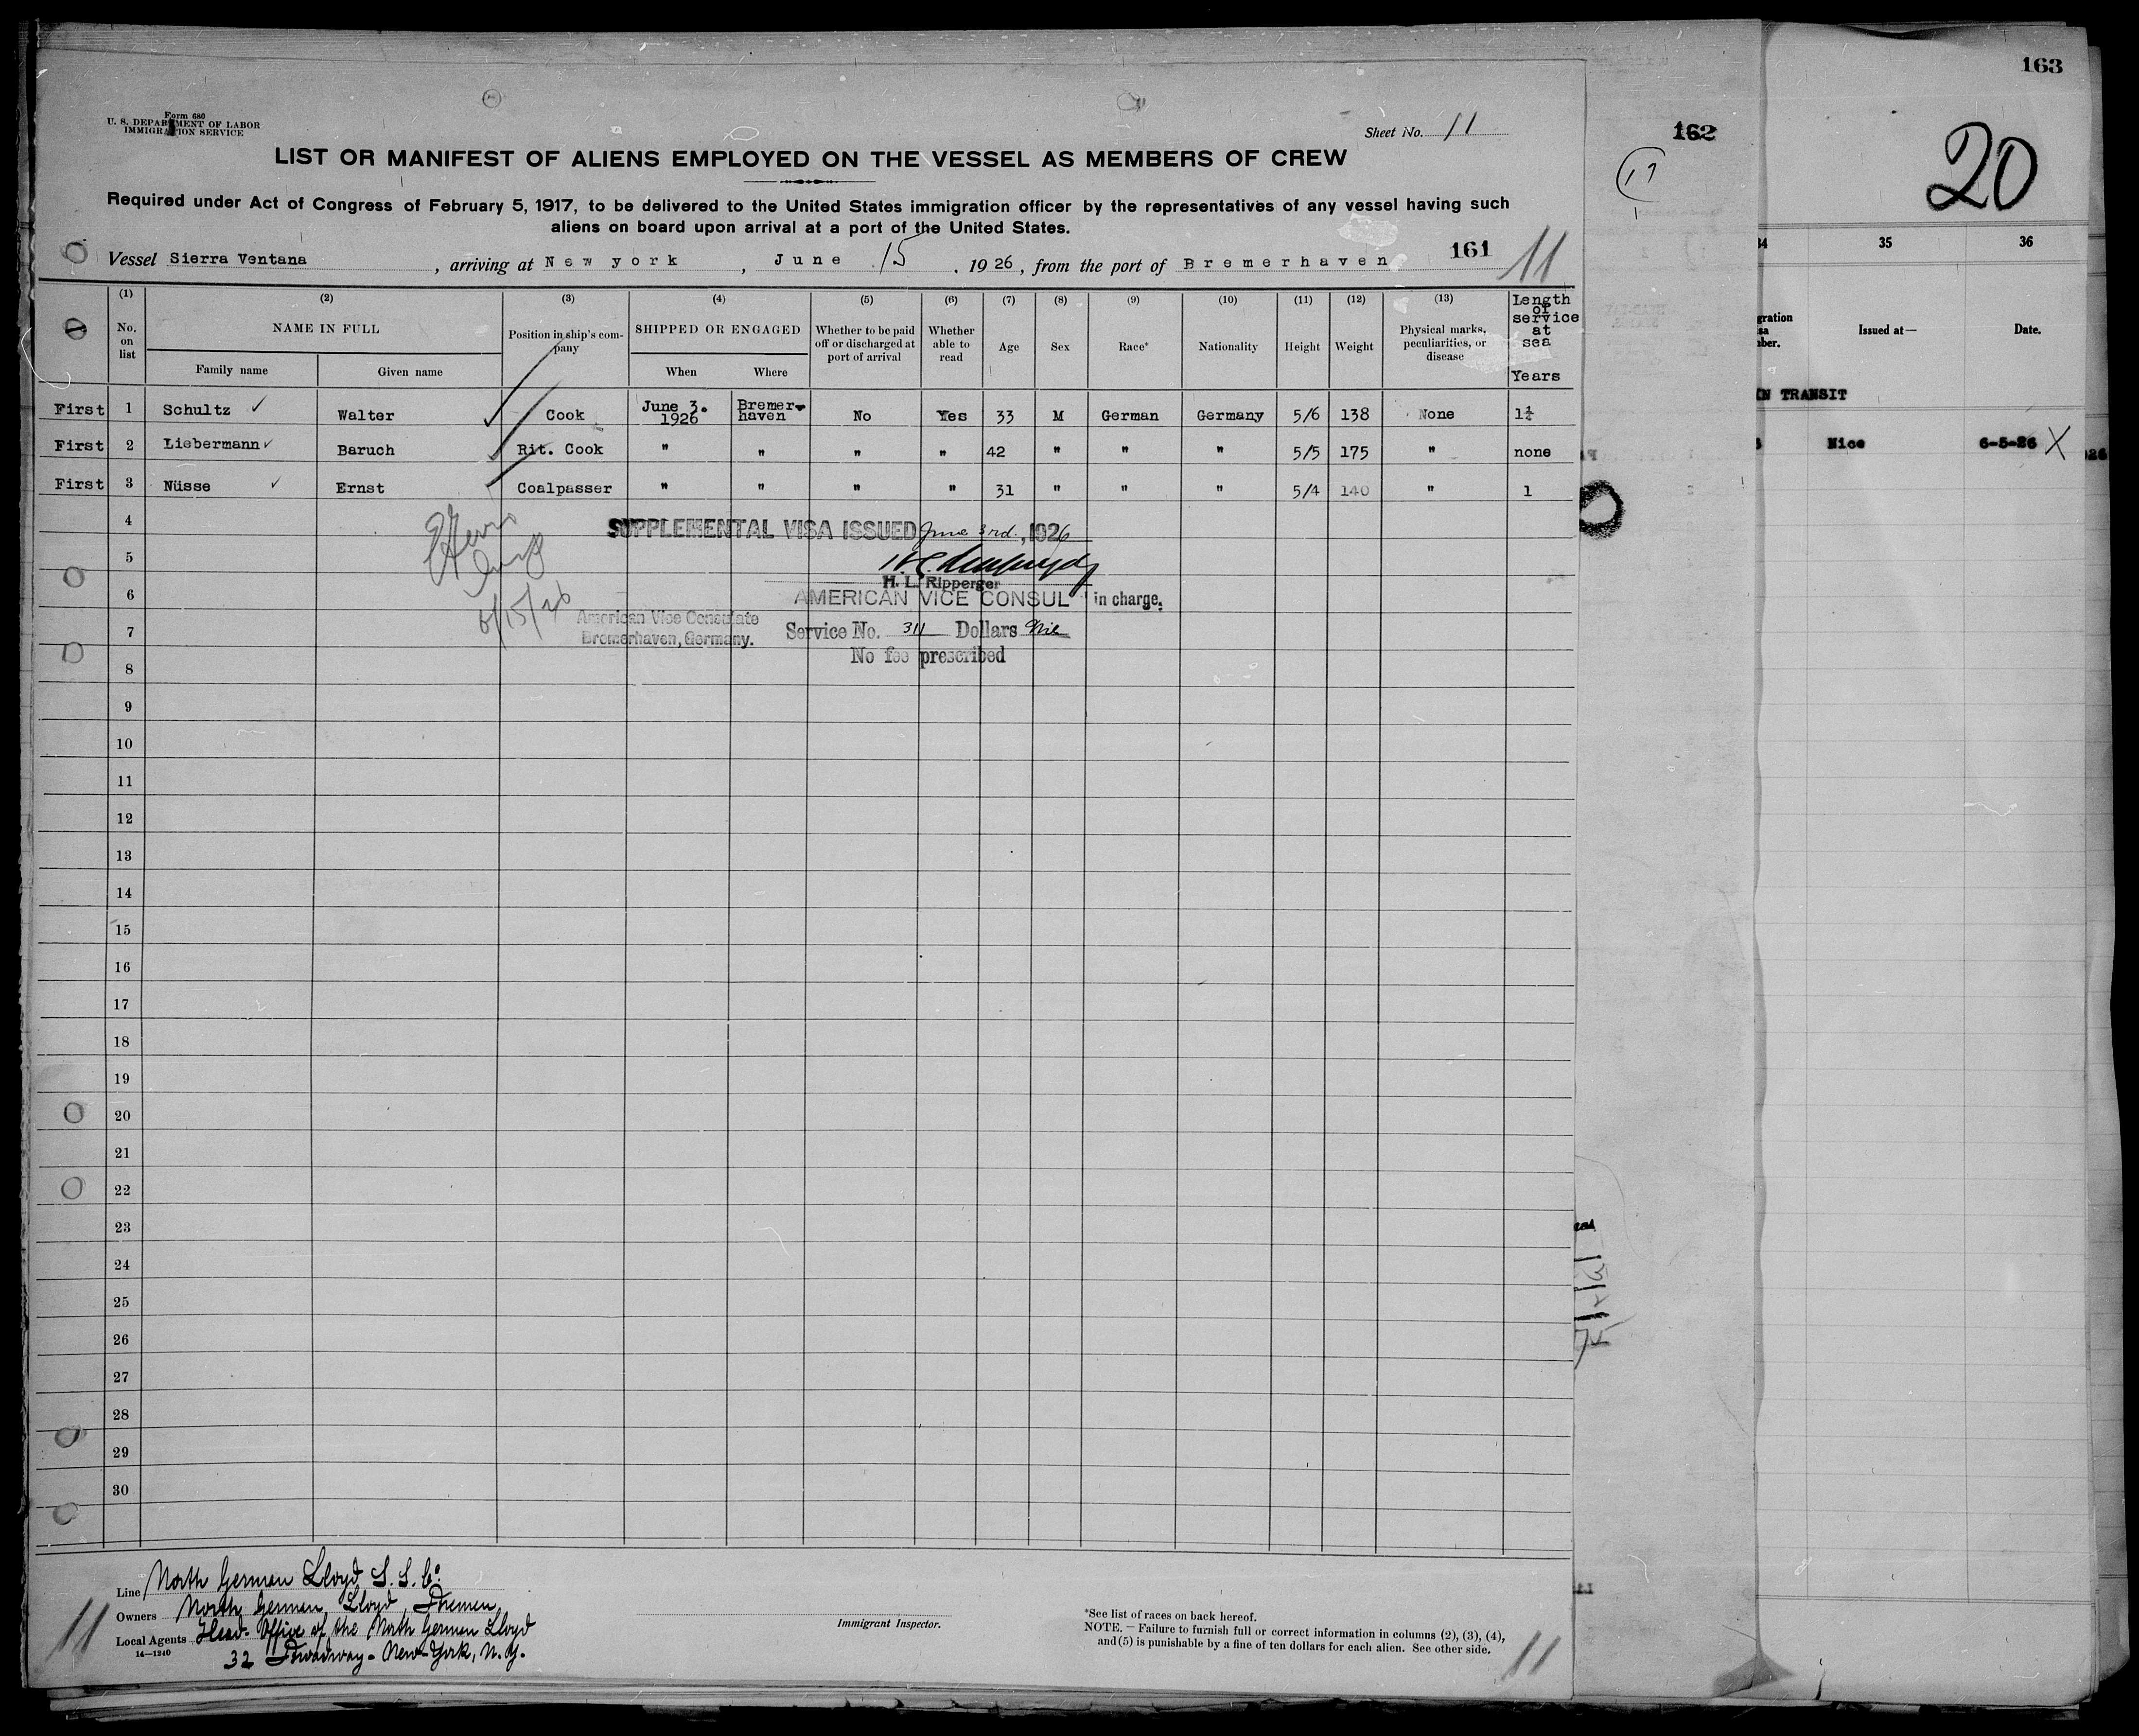 163
162
20
Form 680
U. S. DEPARTMENT OF LABOR
IMMIGRATION SERVICE
Sheet No. 11
LIST OR MANIFEST OF ALIENS EMPLOYED ON THE VESSEL AS MEMBERS OF CREW
Required under Act of Congress of February 5, 1917, to be delivered to the United States immigration officer by the representatives of any vessel having such
aliens on board upon arrival at a port of the United States.
161 11
Vessel Sierra Ventana, arriving at New york, June 15, 1926, from the port of Bremerhaven
(1) (2) (3) (4) (5) (6) (7) (8) (9) (10) (11) (12) (13) Length of service at sea Years
No. on list NAME IN FULL Position in ship's company SHIPPED OR ENGAGED Whether to be paid off or discharged at port of arrival Whether able to read Age Sex Race* Nationality Height Weight Physical marks, peculiarities, or disease
Family name Given name When Where
First 1 Schultz Walter Cook June 3. 1926 Bremerhaven No Yes 33 M German Germany 5/6 138 None 1¼
First 2 Liebermann Baruch Rit. Cook " " " " 42 " " " 5/5 175 " none
First 3 Nüsse Ernst Coalpasser " " " " 31 " " " 5/4 140 " 1
4
SUPPLEMENTAL VISA ISSUED June 3rd., 1926
5
H. L. Ripperger
6
AMERICAN VICE CONSUL in charge.
6/15/26
American Vice Consulate
Bremerhaven, Germany.
7
Service No. 311 Dollars Nil
No fee prescribed
8
9
10
11
12
13
14
15
16
17
18
19
20
21
22
23
24
25
26
27
28
29
30
Line North German Lloyd S. S. Co.
Owners North German Lloyd, Bremen,
Local Agents Head-Office of the North German Lloyd
32 Broadway-New-York, N.Y.
14—1240
11
Immigrant Inspector.
*See list of races on back hereof.
NOTE. — Failure to furnish full or correct information in columns (2), (3), (4),
and (5) is punishable by a fine of ten dollars for each alien. See other side.
11
34 35 36
Issued at— Date.
IN TRANSIT
Nice 6-5-26 X